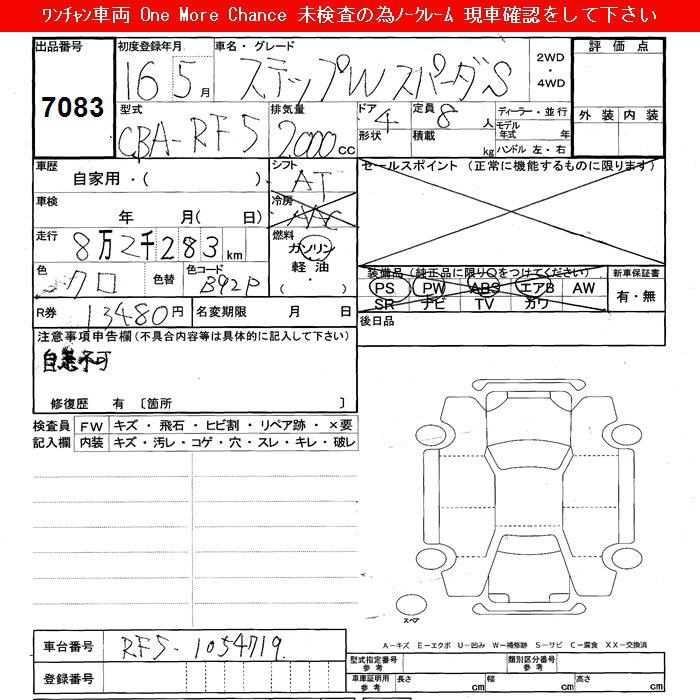 ﾜﾝﾁｬﾝ車両 One More Chance 未検査の為ﾉｰｸﾚｰﾑ 現車確認をして下さい
出品番号 初度登録年月 車名・グレード 評価点
7083 16 5月 ステップW スパーダS 2WD・4WD
型式 排気量 ドア 定員 ディーラー・並行 外装 内装
CBA-RF5 2000cc 4 8人 モデル年式 年
形状 積載 kg ハンドル 左・右
車歴 シフト セールスポイント (正常に機能するものに限ります)
自家用・( ) AT
車検 冷房
年 月( 日) AAC
走行 燃料
8万2千283km ガソリン
軽油
・( )
色 色替 色コード 装備品 (純正品に限り○をつけてください) 新車保証書
クロ B92P PS PW ABS エアB AW 有・無
SR ナビ TV カワ
R券 13480円 名変期限 月 日 後日品
注意事項申告欄(不具合内容等は具体的に記入して下さい)
自走不可
修復歴 有 〔箇所 〕
検査員 FW キズ・飛石・ヒビ割・リペア跡・×要
記入欄 内装 キズ・汚レ・コゲ・穴・スレ・キレ・破レ
スペア
車台番号 RF5-1054719
A-キズ E-エクボ U-凹み W-補修跡 S-サビ C-腐食 XX-交換済
登録番号 型式指定番号 参考 類別区分番号 参考
車庫証明用 参考 長さ cm 幅 cm 高さ cm